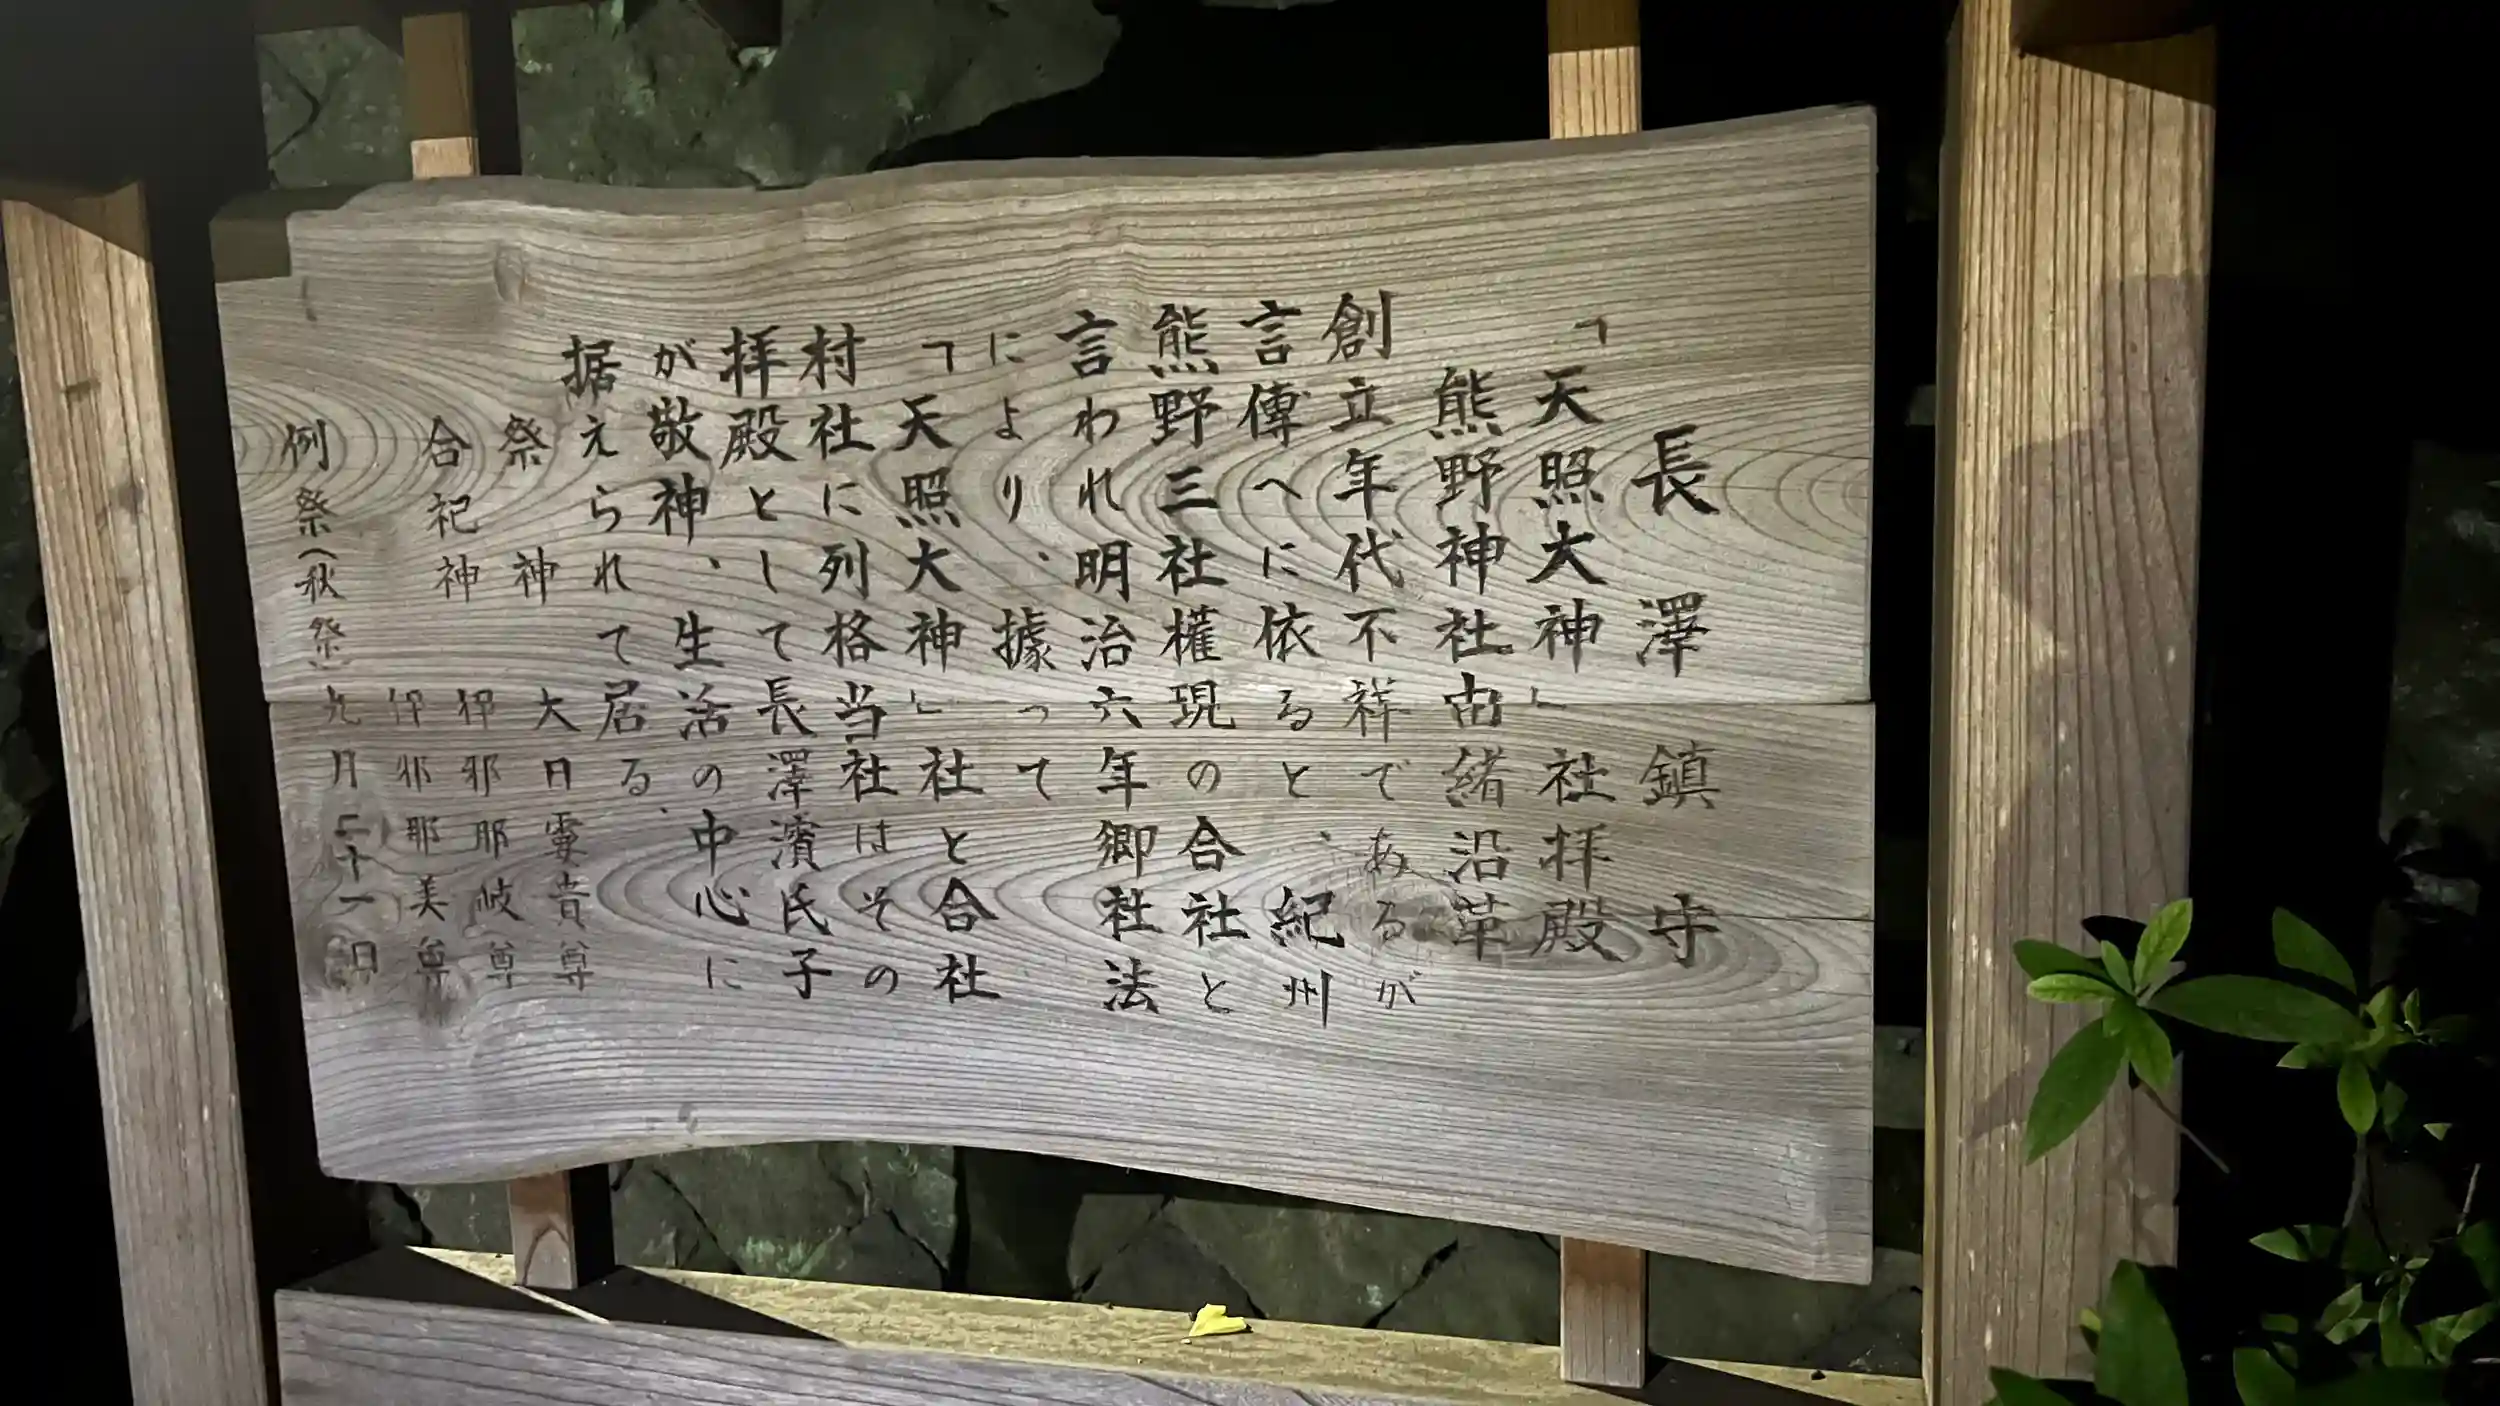 長澤鎮守
「天照大神」社拝殿
熊野神社由緒沿革
創立年代不祥であるが
言傳へに依ると、紀州
熊野三社權現の合社と
言われ明治六年郷社法
により、據って
「天照大神」社と合社
村社に列格当社はその
拝殿として長澤濱氏子
が敬神、生活の中心に
据えられて居る、
祭神 大日孁貴尊
合祀神 伊邪那岐尊
伊邪那美尊
例祭(秋祭)九月二十一日